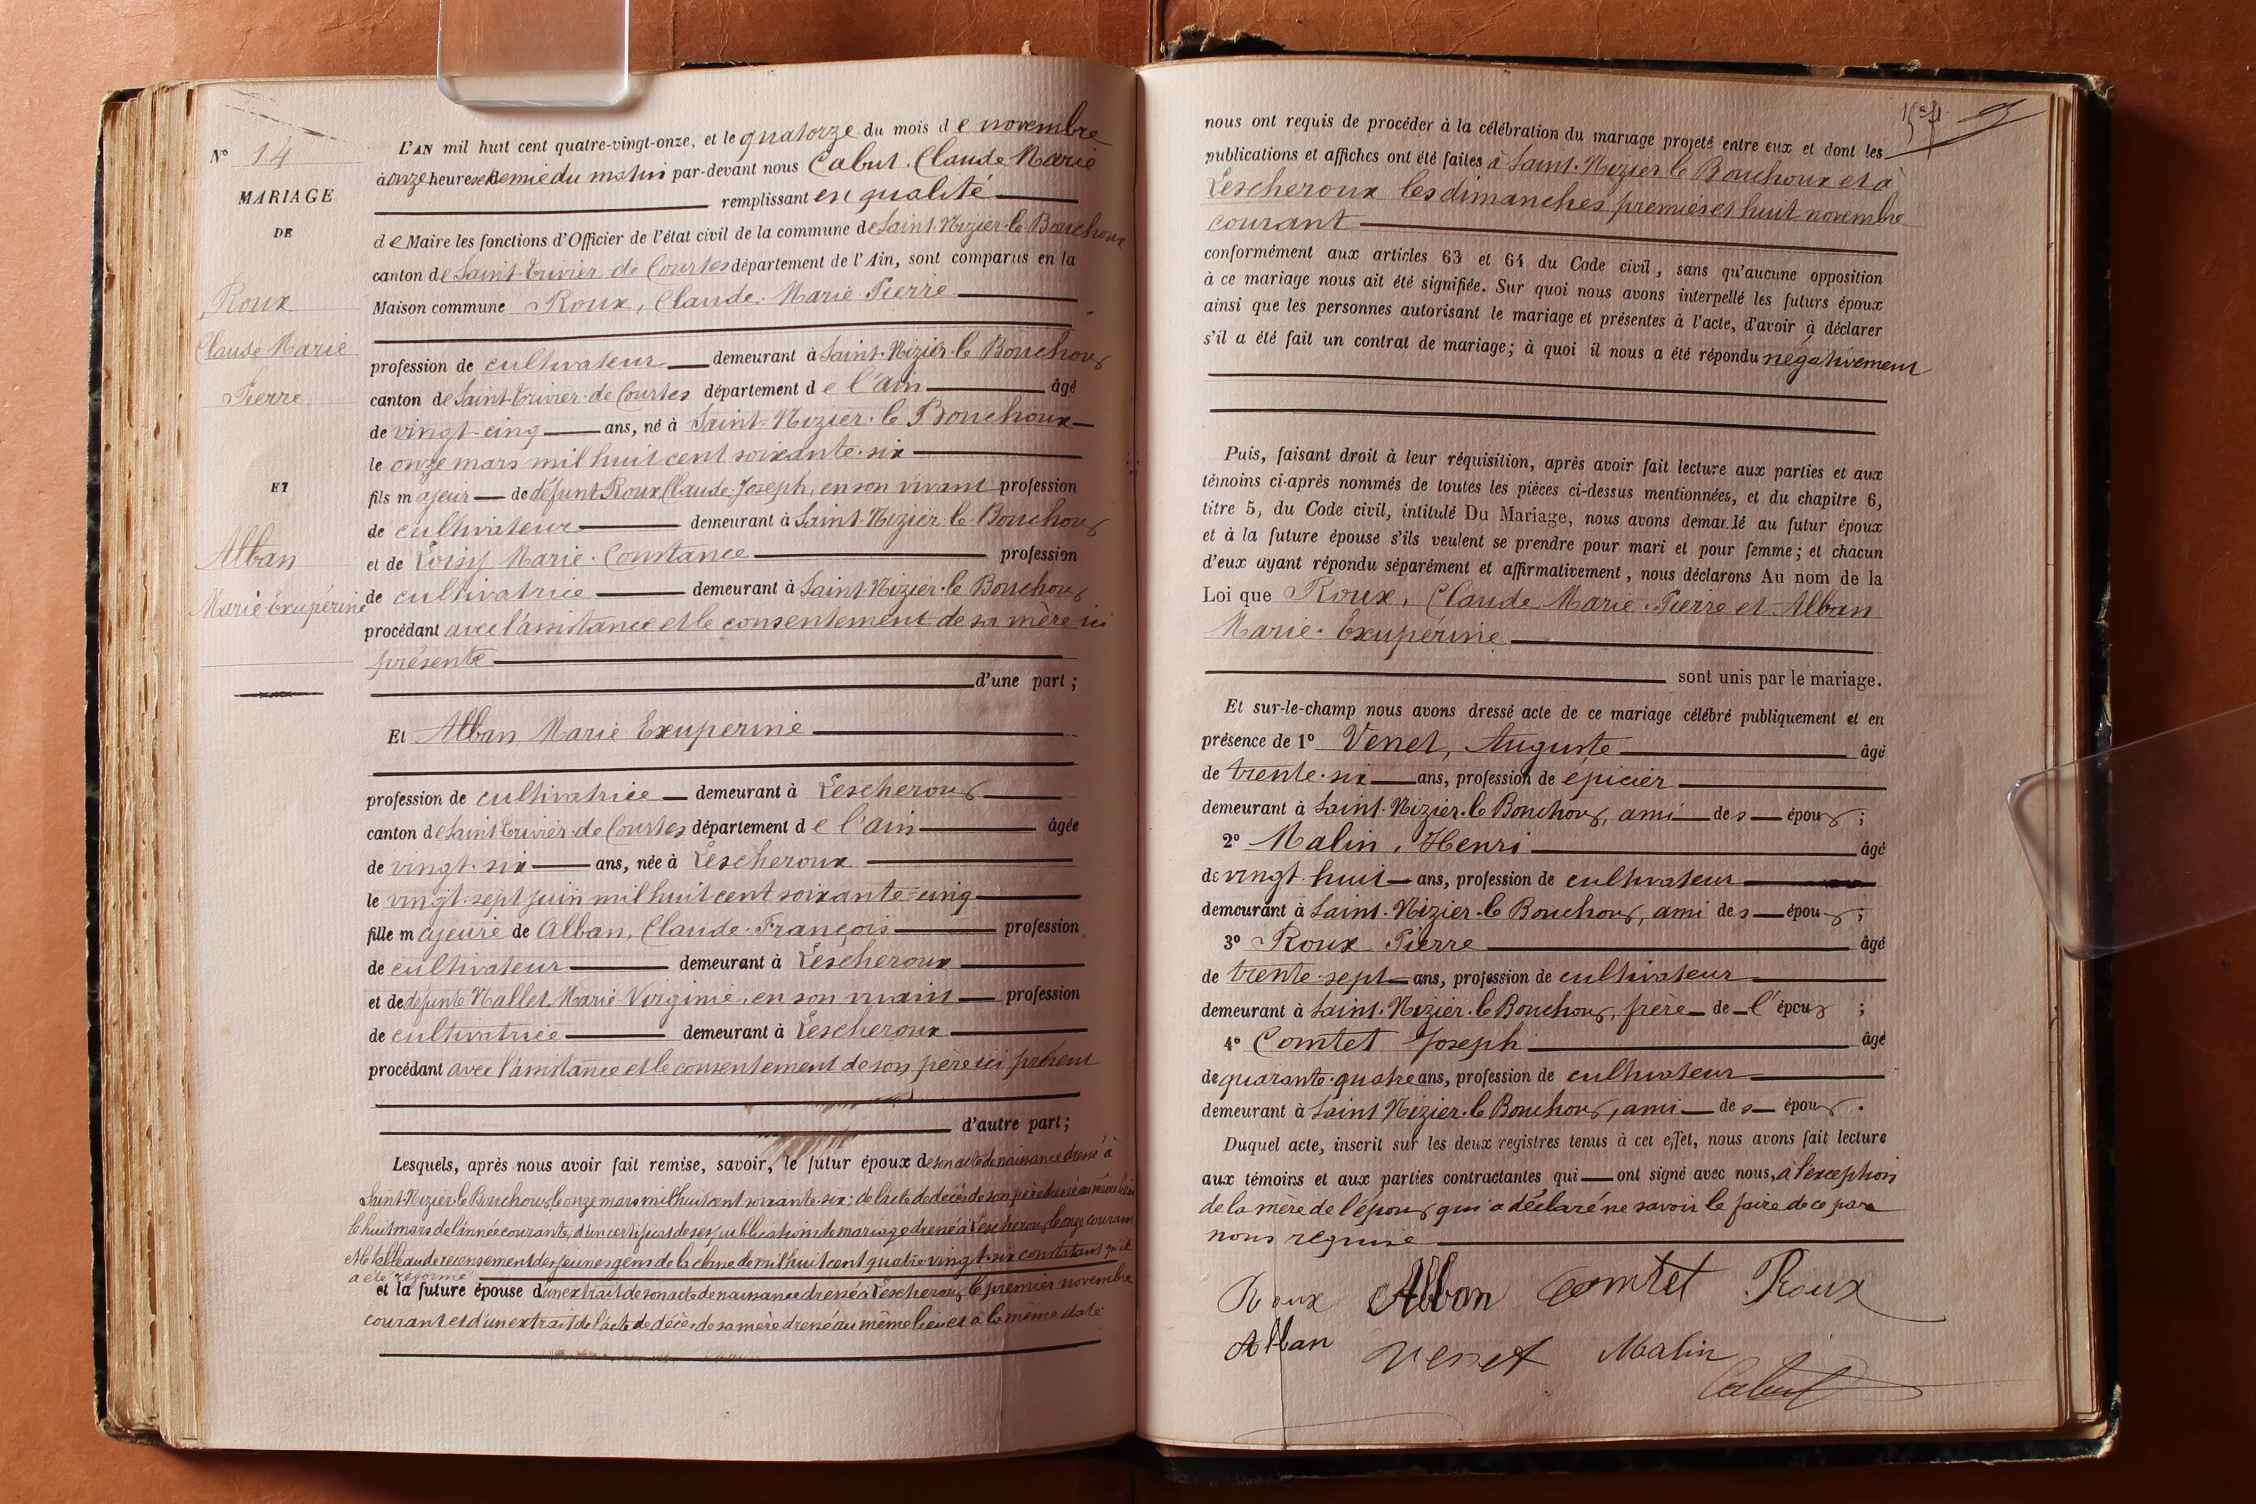 N° 14
MARIAGE
DE
Roux
Claude Marie
Pierre
ET
Alban
Marie Exupérine
L'AN mil huit cent quatre-vingt-onze, et le quatorze du mois de novembre
à onze heures et demie du matin par-devant nous Cabut, Claude Marie
remplissant en qualité
de Maire les fonctions d'Officier de l'état civil de la commune de Saint-Nizier-le-Bouchoux
canton de Saint-Trivier de Courtes département de l'Ain, sont comparus en la
Maison commune Roux, Claude Marie Pierre
profession de cultivateur demeurant à Saint-Nizier-le Bouchoux
canton de Saint-Trivier-de Courtes département de l'Ain âgé
de vingt-cinq ans, né à Saint-Nizier-le Bouchoux
le onze mars mil huit cent soixante-six
fils majeur de défunt Roux Claude Joseph, en son vivant profession
de cultivateur demeurant à Saint-Nizier-le-Bouchoux
et de Loisy Marie-Constance profession
de cultivatrice demeurant à Saint-Nizier-le Bouchoux
procédant avec l'assistance et le consentement de sa mère ici
présente
d'une part ;
Et Alban Marie Exuperine
profession de cultivatrice demeurant à Lescheroux
canton de Saint Trivier-de Courtes département de l'Ain âgée
de vingt-six ans, née à Lescheroux
le vingt-sept juin mil huit cent soixante-cinq
fille majeure de Alban, Claude-François profession
de cultivateur demeurant à Lescheroux
et de défunte Mallet Marie Virginie, en son vivant profession
de cultivatrice demeurant à Lescheroux
procédant avec l'assistance et le consentement de son père ici présent
d'autre part ;
Lesquels, après nous avoir fait remise, savoir, le futur époux de son acte de naissance dressé à
Saint-Nizier-le Bouchoux le onze mars mil huit cent soixante-six ; de l'acte de décès de son père dressé au même lieu
le huit mars de l'année courante, d'un certificat de ses publications de mariage dressé à Lescheroux le onze courant
et le tableau de recensement des jeunes gens de la classe de mil huit cent quatre vingt-six constatant qu'il
a été réformé
et la future épouse d'un extrait de son acte de naissance dressé à Lescheroux le premier novembre
courant et d'un extrait de l'acte de décès de sa mère dressé au même lieu et à la même date
nous ont requis de procéder à la célébration du mariage projeté entre eux et dont les
publications et affiches ont été faites à Saint-Nizier le Bouchoux et à
Lescheroux les dimanches premier et huit novembre
courant
conformément aux articles 63 et 64 du Code civil, sans qu'aucune opposition
à ce mariage nous ait été signifiée. Sur quoi nous avons interpellé les futurs époux
ainsi que les personnes autorisant le mariage et présentes à l'acte, d'avoir à déclarer
s'il a été fait un contrat de mariage ; à quoi il nous a été répondu négativement
Puis, faisant droit à leur réquisition, après avoir fait lecture aux parties et aux
témoins ci-après nommés de toutes les pièces ci-dessus mentionnées, et du chapitre 6,
titre 5, du Code civil, intitulé Du Mariage, nous avons demandé au futur époux
et à la future épouse s'ils veulent se prendre pour mari et pour femme ; et chacun
d'eux ayant répondu séparément et affirmativement, nous déclarons Au nom de la
Loi que Roux, Claude Marie Pierre et Alban
Marie-Exupérine
sont unis par le mariage.
Et sur-le-champ nous avons dressé acte de ce mariage célébré publiquement et en
présence de 1° Venet, Auguste âgé
de trente-six ans, profession de épicier
demeurant à Saint-Nizier-le Bouchoux, ami des époux ;
2° Malin, Henri âgé
de vingt-huit ans, profession de cultivateur
demeurant à Saint-Nizier-le Bouchoux, ami des époux ;
3° Roux Pierre âgé
de trente-sept ans, profession de cultivateur
demeurant à Saint-Nizier-le Bouchoux, frère de l'époux ;
4° Comtet Joseph âgé
de quarante-quatre ans, profession de cultivateur
demeurant à Saint Nizier-le Bouchoux, ami des époux.
Duquel acte, inscrit sur les deux registres tenus à cet effet, nous avons fait lecture
aux témoins et aux parties contractantes qui ont signé avec nous, à l'exception
de la mère de l'époux qui a déclaré ne savoir le faire de ce par
nous requise
Roux Alban Comtet Roux
Alban Venet Malin
Cabut